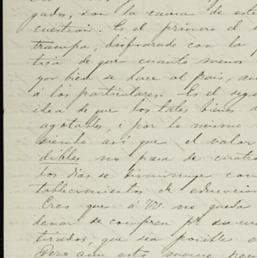 gados, son la causa de este
cuestion. Es el primero el
trampa, disfrazado con la
taca de que cuanto menos
yor bien se hace al pais, aun
á los particulares. Es el segun
idea de que los tales bienes
agotables, i por lo mismo
siendo asi que el valor
dibles no pasa de cuatro
los dias se disminuye con
tablecimientos de educacion
Creo que á V. no queda
denar se compren por su cuen
tirados, que sea posible
Pero aun esta misma